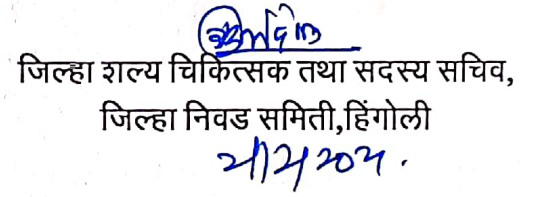 जिल्हा शल्य चिकित्सक तथा सदस्य सचिव,
जिल्हा निवड समिती,हिंगोली